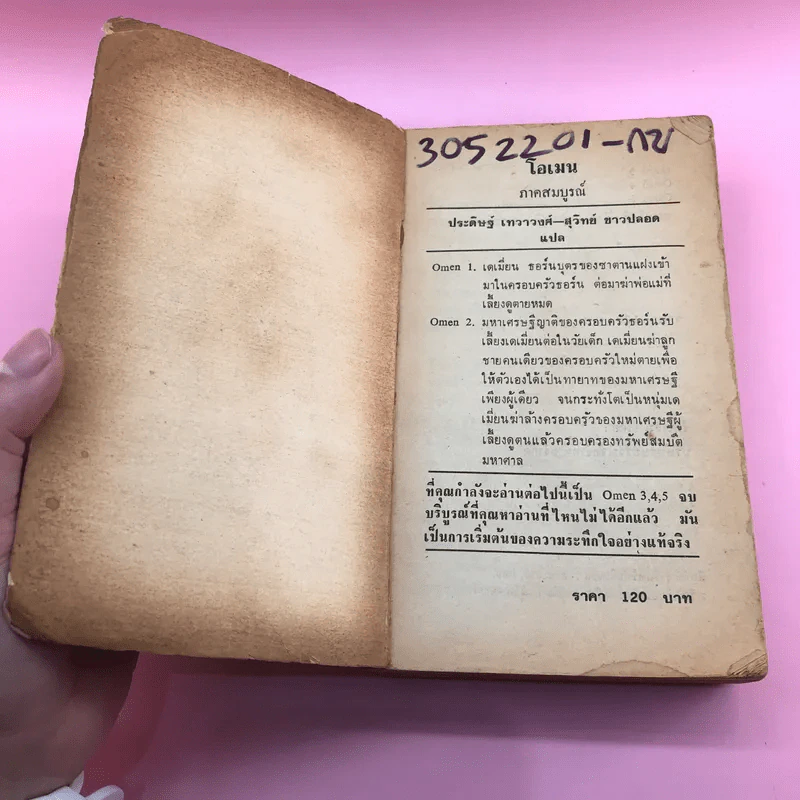 3052201-กข
โอเมน
ภาคสมบูรณ์
ประดิษฐ์ เทวาวงศ์—สุวิทย์ ขาวปลอด
แปล
Omen 1. เดเมี่ยน ธอร์นบุตรของซาตานแฝงเข้า
มาในครอบครัวธอร์น ต่อมาฆ่าพ่อแม่ที่
เลี้ยงดูตายหมด
Omen 2. มหาเศรษฐีญาติของครอบครัวธอร์นรับ
เลี้ยงเดเมี่ยนต่อในวัยเด็ก เดเมี่ยนฆ่าลูก
ชายคนเดียวของครอบครัวใหม่ตายเพื่อ
ให้ตัวเองได้เป็นทายาทของมหาเศรษฐี
เพียงผู้เดียว จนกระทั่งโตเป็นหนุ่มเด
เมี่ยนฆ่าล้างครอบครัวของมหาเศรษฐีผู้
เลี้ยงดูตนแล้วครอบครองทรัพย์สมบัติ
มหาศาล
ที่คุณกำลังจะอ่านต่อไปนี้เป็น Omen 3,4,5 จบ
บริบูรณ์ที่คุณหาอ่านที่ไหนไม่ได้อีกแล้ว มัน
เป็นการเริ่มต้นของความระทึกใจอย่างแท้จริง
ราคา 120 บาท